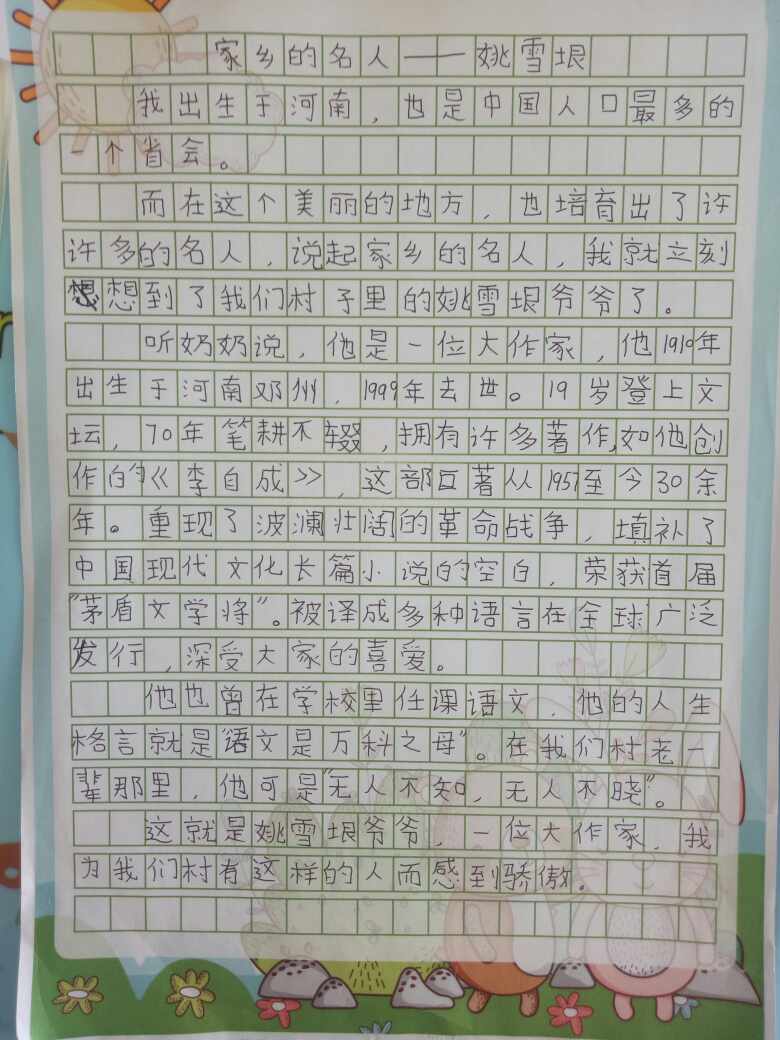 家乡的名人——姚雪垠
我出生于河南，也是中国人口最多的
一个省会。
而在这个美丽的地方，也培育出了许
许多的名人，说起家乡的名人，我就立刻
想想到了我们村子里的姚雪垠爷爷了。
听奶奶说，他是一位大作家，他1910年
出生于河南邓州，1999年去世。19岁登上文
坛，70年笔耕不辍，拥有许多著作，如他创
作的《李自成》，这部巨著从1957至今30余
年。重现了波澜壮阔的革命战争，填补了
中国现代文化长篇小说的空白，荣获首届
“茅盾文学将”。被译成多种语言在全球广泛
发行，深受大家的喜爱。
他也曾在学校里任课语文，他的人生
格言就是“语文是万科之母”。在我们村老一
辈那里，他可是“无人不知，无人不晓”。
这就是姚雪垠爷爷，一位大作家，我
为我们村有这样的人而感到骄傲。